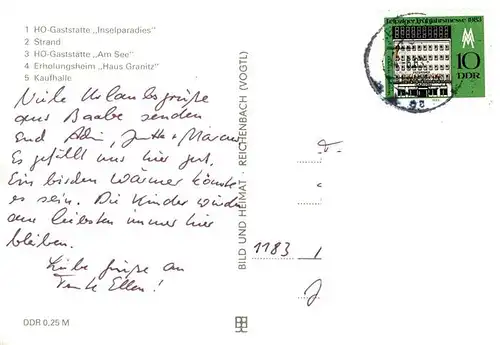 1 HO-Gaststätte „Inselparadies"
2 Strand
3 HO-Gaststätte „Am See"
4 Erholungsheim „Haus Granitz"
5 Kaufhalle
Viele Urlaubsgrüße
aus Baabe senden
Adri, Jutta + Marcus
Es gefällt uns hier gut.
Ein bisden wärmer könnte
es sein. Die Kinder würden
am liebsten immer hier
bleiben.
Liebe Grüße an
Tante Ellen!
DDR 0,25 M
BILD UND HEIMAT · REICHENBACH (VOGTL)
Leipziger Frühjahrsmesse 1983
10
DDR
1183